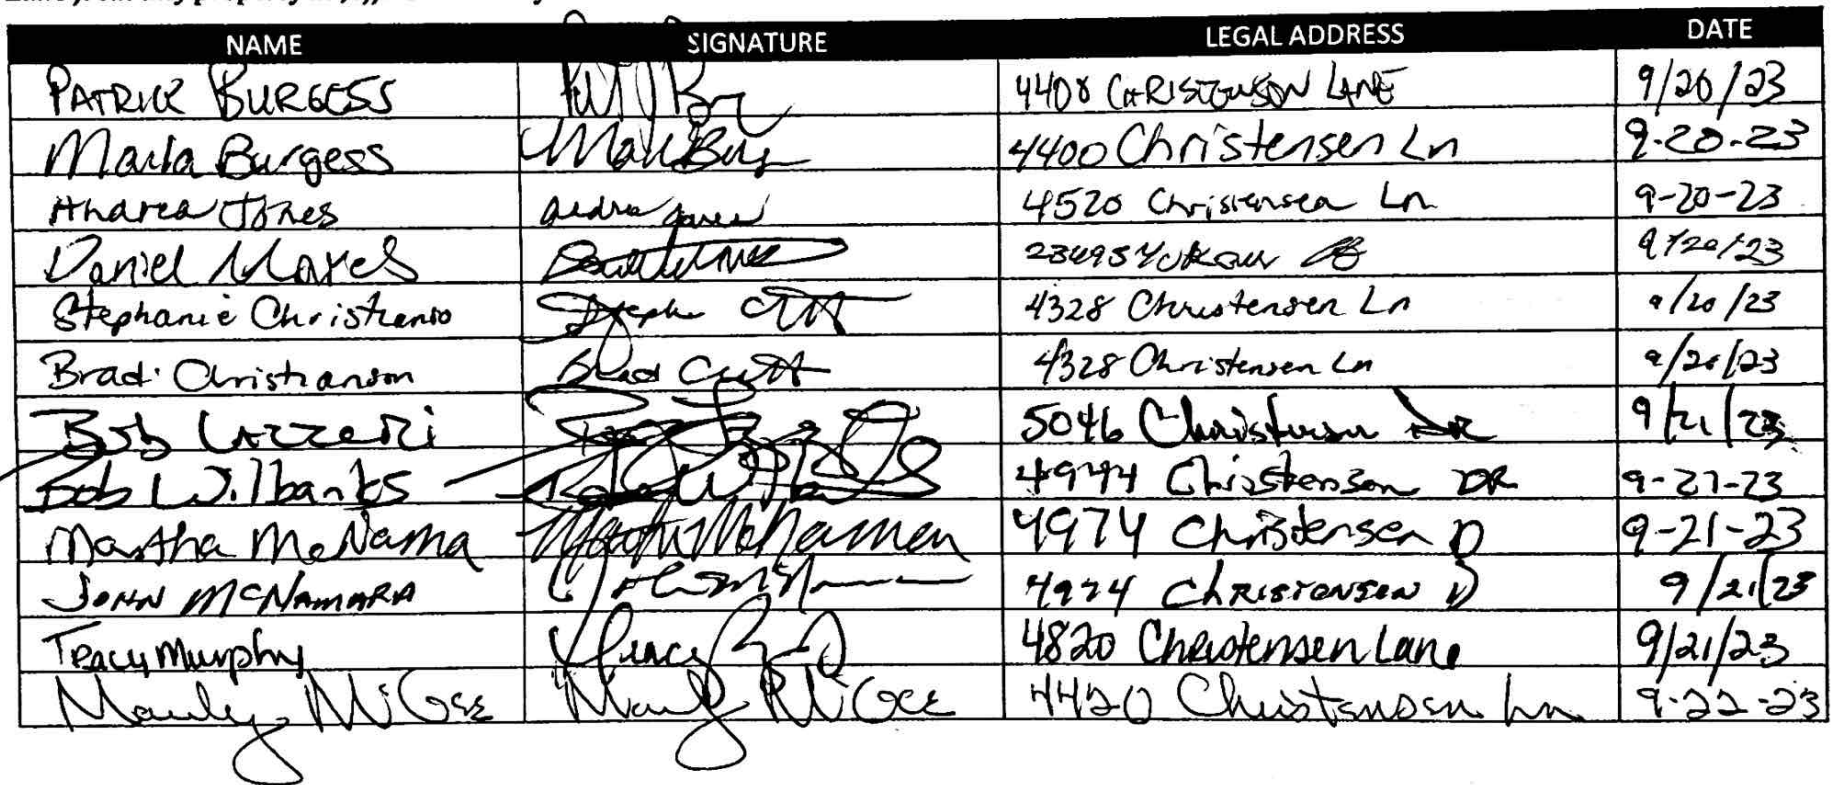 NAME SIGNATURE LEGAL ADDRESS DATE
PATRICK BURGESS 4408 CHRISTENSON LANE 9/20/23
Marla Burgess 4400 Christensen Ln 9-20-23
Andrea Jones Andrea Jones 4520 Christensen Ln 9-20-23
Daniel 9/20/23
Stephanie Christianso 4328 Christensen Ln 9/20/23
Brad Christianson Brad 4328 Christensen Ln 9/20/23
Bob 5046 Christensen DR 9/21/23
Bob Wilbanks 4944 Christenson DR 9-21-23
Martha McNama Martha McNamara 4974 Christensen D 9-21-23
JOHN McNAMARA John 4974 CHRISTENSEN D 9/21/23
Tracy Murphy Tracy 4820 Christensen Lane 9/21/23
McGee McGee 4420 Christensen Ln 9-22-23